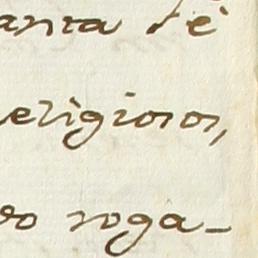 anta fè
eligiosos,
do roga-